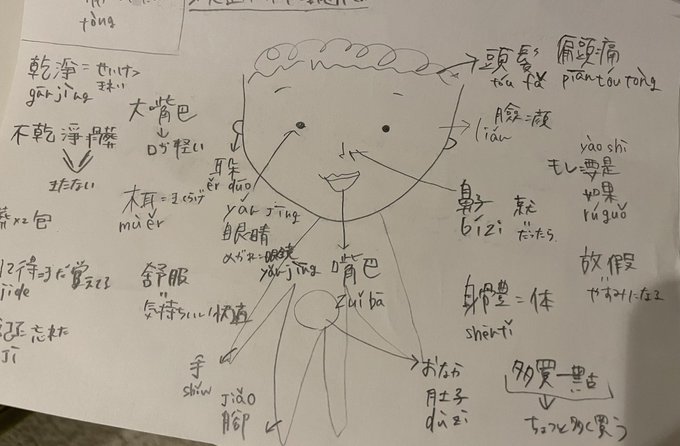 tòng
乾淨 = せいけつ
きれい
gān jìng
不乾淨 髒
きたない
大嘴巴
口が軽い
木耳 = きくらげ
mù ěr
舒服
気持ちいい 快適
耳朵
ěr duō
yǎn jīng
眼睛
めがね = 眼鏡
yǎn jìng
嘴巴
zuǐ bā
手
shǒu
jiǎo
腳
頭髮
tóu fǎ
偏頭痛
piān tóu tòng
臉 顔
liǎn
鼻子
bízi
就
だったら
yào shì
もし 要是
如果
rú guǒ
放假
やすみになる
身體 = 体
shēn tǐ
おなか
肚子
dù zi
多買一點
ちょっと多く買う
×2 包
記得 まだ覚えてる
jì de
忘れた
jì